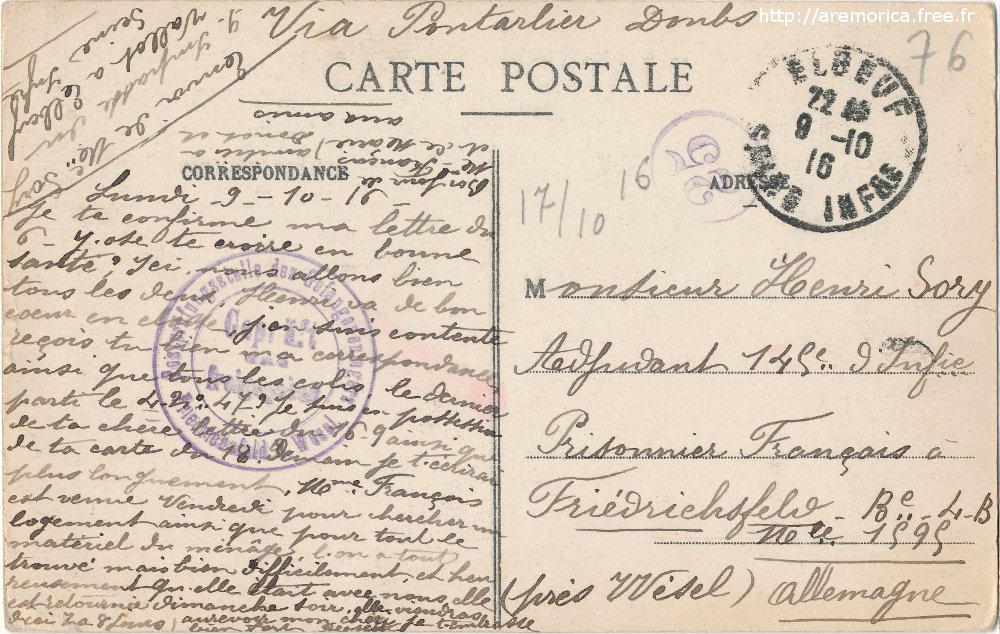 http://aremorica.free.fr
Via Pontarlier Doubs
76
CARTE POSTALE
Envoi de Mme Sory
Vallot à Elbeuf
Seine Infre
ELBEUF
22
9 -10
16
SEINE INFRE
CORRESPONDANCE
ADRESSE
17/10 16
Lundi 9-10-16
Je te confirme ma lettre du
6 - J'ose te croire en bonne
santé, Ici nous allons bien
tous les deux, Henri va de bon
coeur en classe, j'en suis contente
reçois tu bien ma correspondance
ainsi que tous les colis, le dernier
parti le 4 No 47? Je suis en possession
de ta chère lettre du 16 9 ainsi que
de ta carte du 18. Demain je t'écrirai
plus longuement, Mme François
est venue Vendredi pour chercher un
logement ainsi que pour tout le
matériel du ménage, l'on a tout
trouvé mais bien difficilement, et heu
reusement qu'elle était avec nous, elle
est retournée dimanche soir, elle viendra
d'ici 7 a 8 jours, aurevoir mon chéri je t'embrasse
bien fort
Bonjour de
Mme François
et de Marie
aux amis
Monsieur Henri Sory
Adjudant 145e d'Infie
Prisonnier Français à
Friédrichsfeld - Be - 4 - B
Mle 1595
(près Wésel) Allemagne
Geprüft
Friedrichsfeld Wesel